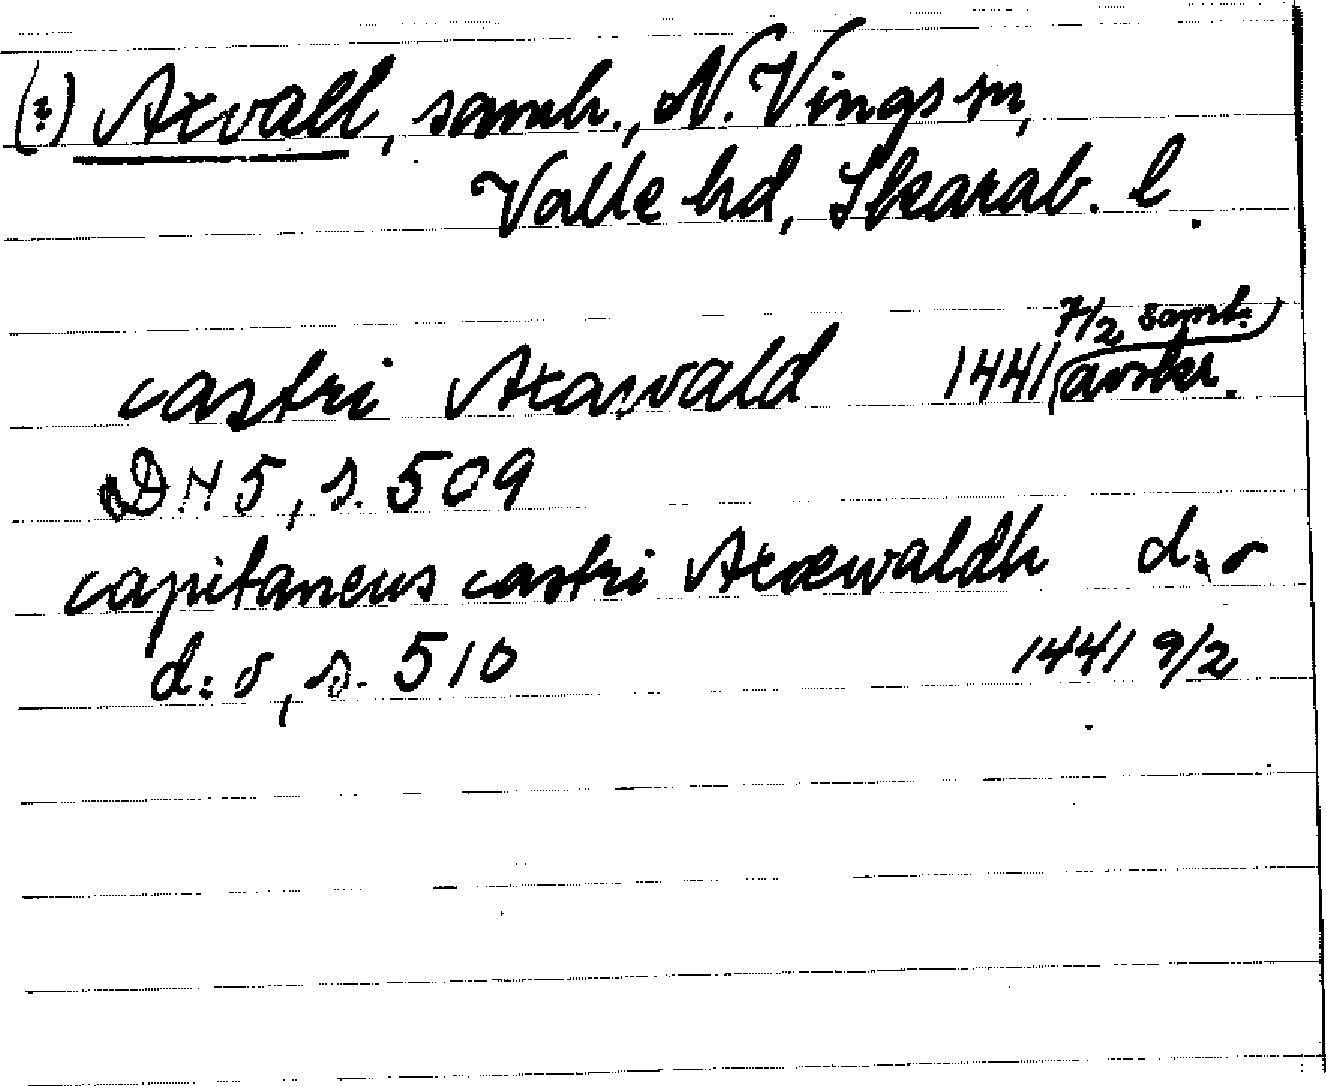 (?) Axvall, samh., N. Vings sn,
Valle hd, Skarab. l.
castri Axawald 1441 7/2 samt. avskr.
DN 5, s. 509
capitaneus castri Axæwaldh d:o
d:o, s. 510 1441 9/2